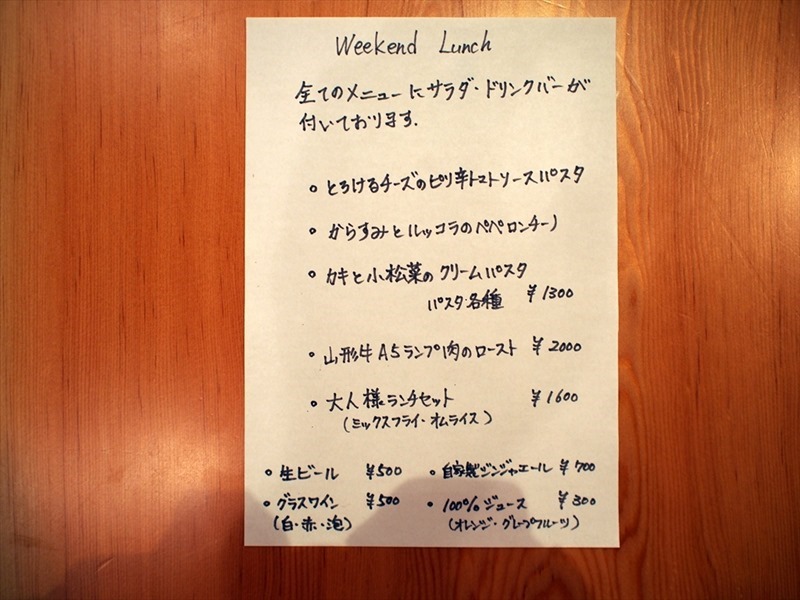 Weekend Lunch
全てのメニューにサラダ・ドリンクバーが
付いております.
○とろけるチーズのピリ辛トマトソースパスタ
○からすみとルッコラのペペロンチーノ
○カキと小松菜のクリームパスタ
パスタ各種 ¥1300
○山形牛A5ランプ肉のロースト ¥2000
○大人様ランチセット ¥1600
(ミックスフライ・オムライス)
○生ビール ¥500 ○自家製ジンジャエール ¥700
○グラスワイン ¥500 ○100%ジュース ¥300
(白・赤・泡) (オレンジ・グレープフルーツ)